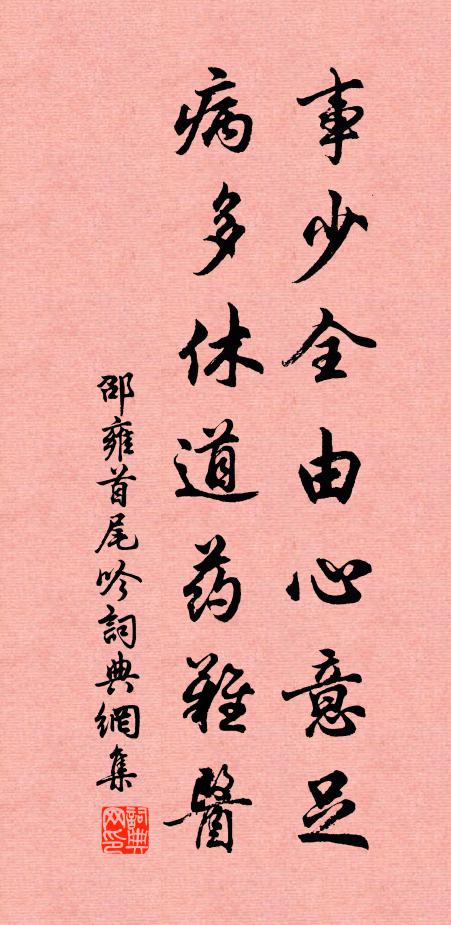 事少全由心意足
病多休道药难醫
邵雍首尾吟詞典網集
詞典网印